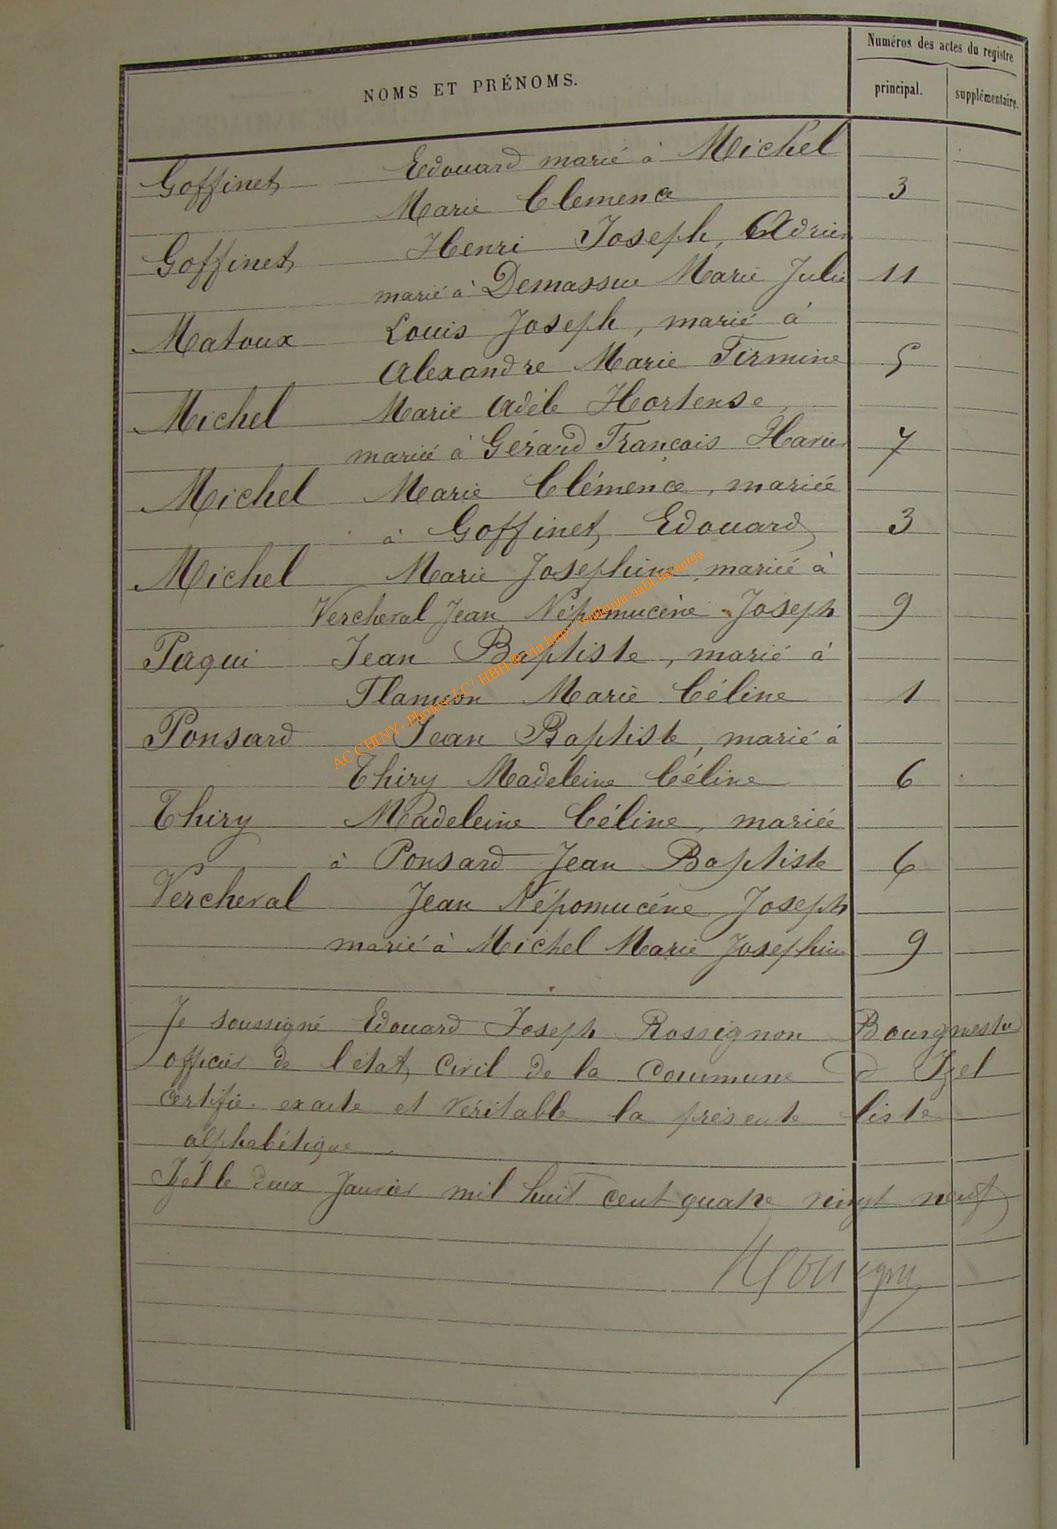 NOMS ET PRÉNOMS.
Numéros des actes du registre
principal. supplémentaire.
Goffinet Edouard marié à Michel
Marie Clemence 3
Goffinet Henri Joseph, Adrien
marié à Demassue Marie Julie 11
Matoux Louis Joseph, marié à
Alexandre Marie Firmine 5
Michel Marie Adèle Hortense,
mariée à Gérard François Xavier 7
Michel Marie Clémence, mariée
à Goffinet Edouard 3
Michel Marie Josephine, mariée à
Vercheval Jean Népomucène Joseph 9
Paqui Jean Baptiste, marié à
Flamion Marie Céline 1
Ponsard Jean Baptiste, marié à
Thiry Madeleine Céline 6
Thiry Madeleine Céline, mariée
à Ponsard Jean Baptiste 6
Vercheval Jean Népomucéne Joseph
marié à Michel Marie Josephine 9
Je soussigné Edouard Joseph Rossignon Bourgmestre
officier de l'état civil de la Commune d Izel
certifie exacte et véritable la présente liste
alphabétique.
Izel le deux Janvier mil huit cent quatre vingt neuf
ACCHINY - Photos LC/HBH